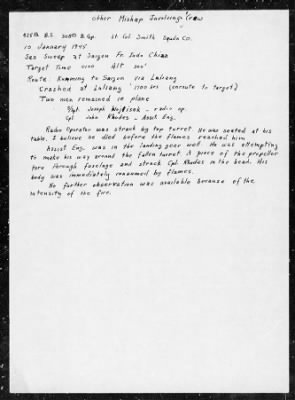 other Mishap Involving Crew
425th B.S. 308th B.Gp. Lt Col. Smith Sqdn Co.
10 January 1945
Sea Sweep at Saigon Fr. Indo China
Target Time 0100 Alt 300'
Route: Kunming to Saigon via Luliang
Crashed at Luliang 1700 hrs (enroute to target)
Two men remained in plane
S/Sgt. Joseph - radio op.
Cpl John Rhodes - Asst Eng.
Radio Operator was struck by top turret. He was seated at his
table. I believe he died before the flames reached him
Assist Eng. was in the landing gear well. He was attempting
to make his way around the fallen turret. A piece of the propeller
tore through fuselage and struck Cpl. Rhodes in the head. His
body was immediately consumed by flames.
No further observation was available because of the
intensity of the fire.